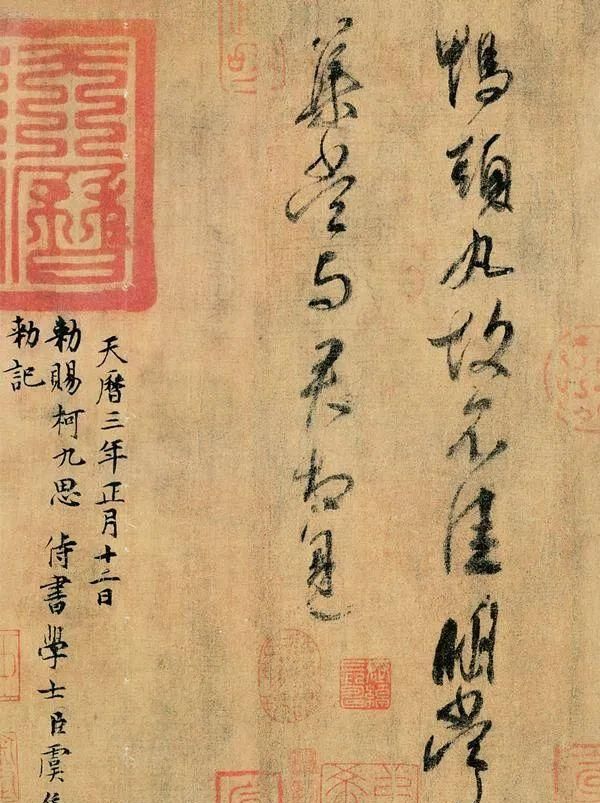 鴨頭丸故不佳明當
集當與君相見
天曆三年正月十二日
勑賜柯九思 侍書學士臣虞集
勑記
天曆